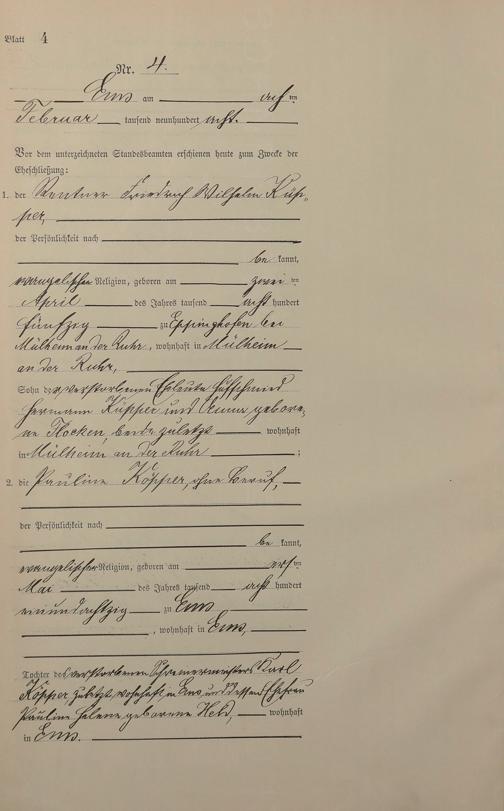 Blatt 4
Nr. 4.
Ems am acht ten
Februar tausend neunhundert acht.
Vor dem unterzeichneten Standesbeamten erschienen heute zum Zwecke der
Eheschließung:
1. der Rentner Friedrich Wilhelm Küp-
per,
der Persönlichkeit nach
be kannt,
evangelischer Religion, geboren am zwei ten
April des Jahres tausend acht hundert
fünfzig zu Eppinghofen bei
Mülheim an der Ruhr, wohnhaft in Mülheim
an der Ruhr,
Sohn der verstorbenen Eheleute Hufschmied
Hermann Küpper und Anna gebore-
ne Flocken, beide zuletzt wohnhaft
in Mülheim an der Ruhr ;
2. die Pauline Köpper, ohne Beruf,
der Persönlichkeit nach
be kannt,
evangelischer Religion, geboren am ers ten
Mai des Jahres tausend acht hundert
einundachtzig zu Ems,
, wohnhaft in Ems,
Tochter des verstorbenen Schreinermeisters Karl
Köpper, zuletzt wohnhaft in Ems, und dessen Ehefrau
Pauline Helene geborene Held, wohnhaft
in Ems.